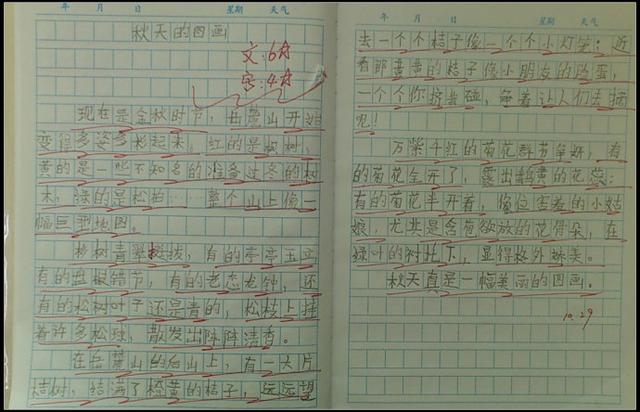 年 月 日 星期 天气
秋天的图画
文:6分
字:4分
现在是金秋时节,岳麓山开始
变得多姿多彩起来,红的是枫树,
黄的是一些不知名的准备过冬的树
木,绿的是松柏……整个山上像一
幅巨型地图。
松树青翠挺拔,有的亭亭玉立
有的盘根错节,有的老态龙钟,还
有的松树叶子还是青的,松枝上挂
着许多松球,散发出阵阵清香。
在岳麓山的后山上,有一大片
桔树,结满了橙黄的桔子,远远望
年 月 日 星期 天气
去一个个桔子像一个个小灯笼;近
看那黄黄的桔子像小朋友的脸蛋,
一个个你挤我碰,争着让人们去摘
呢!!
万紫千红的菊花群芳争妍,有
的菊花全开了,露出鹅黄的花蕊;
有的菊花半开着,像位害羞的小姑
娘,尤其是含苞欲放的花骨朵,在
绿叶的衬托下,显得格外娇美。
秋天真是一幅美丽的图画。
10.29